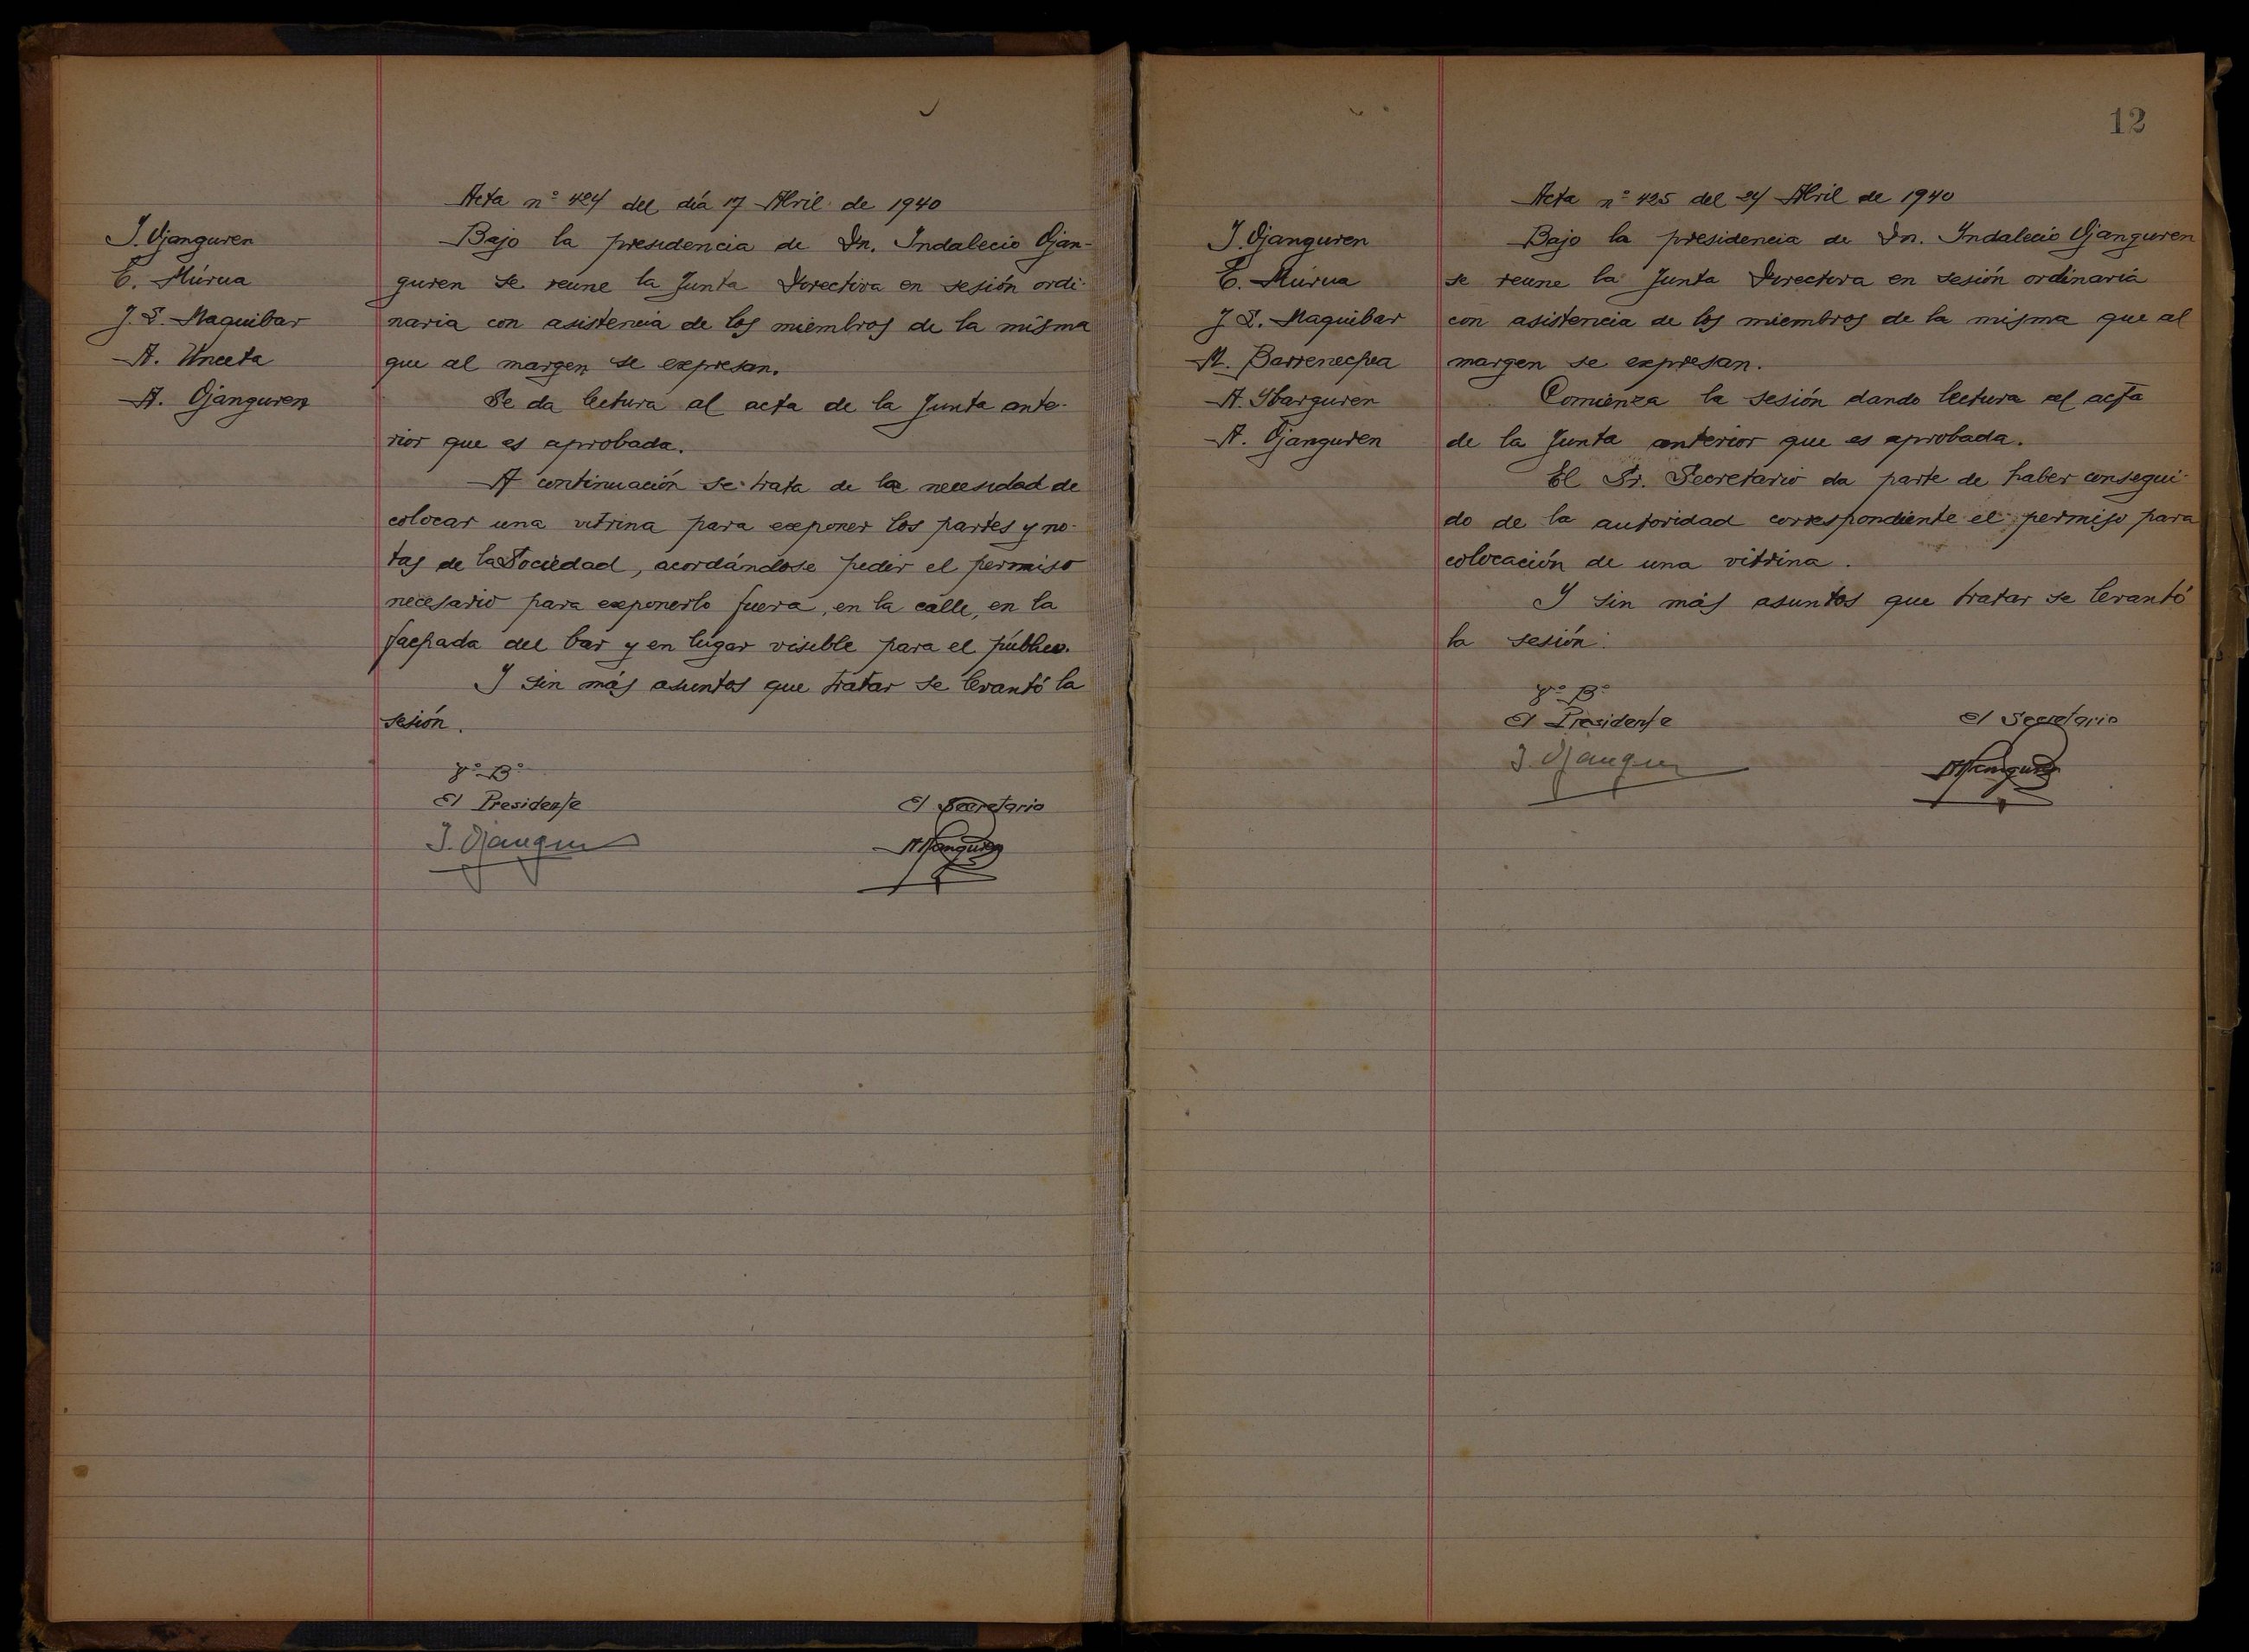 Acta nº 424 del día 17 Abril de 1940
J. Ojanguren
E. Múrua
J. L. Maquibar
A. Unceta
A. Ojanguren
Bajo la presidencia de Dn. Indalecio Ojan-
guren se reune la Junta Directiva en sesión ordi-
naria con asistencia de los miembros de la misma
que al margen se expresan.
Se da lectura al acta de la Junta ante-
rior que es aprobada.
A continuación se trata de la necesidad de
colocar una vitrina para exponer los partes y no-
tas de la Sociedad, acordándose pedir el permiso
necesario para exponerlo fuera, en la calle, en la
fachada del bar y en lugar visible para el público.
Y sin más asuntos que tratar se levantó la
sesión.
Vº Bº
El Presidente
El Secretario
I. Ojanguren
A. Ojanguren
12
Acta nº 425 del 24 Abril de 1940
J. Ojanguren
E. Múrua
J. L. Maquibar
M. Barrenechea
A. Ybarguren
A. Ojanguren
Bajo la presidencia de Dn. Indalecio Ojanguren
se reune la Junta Directiva en sesión ordinaria
con asistencia de los miembros de la misma que al
margen se expresan.
Comienza la sesión dando lectura al acta
de la Junta anterior que es aprobada.
El Sr. Secretario da parte de haber consegui-
do de la autoridad correspondiente el permiso para
colocación de una vitrina.
Y sin más asuntos que tratar se levantó
la sesión.
Vº Bº
El Presidente
El Secretario
I. Ojanguren
A. Ojanguren